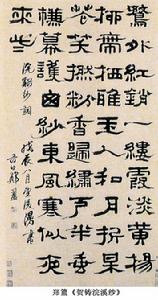 鶩外紅綃一縷霞淡黃楊
柳暗栖鴉玉人和月摘梅
花笑撚粉香歸洞戶更垂
簾幕護窗紗東風寒似夜
來些
浣溪紗詞
郑簠《贺铸浣溪纱》